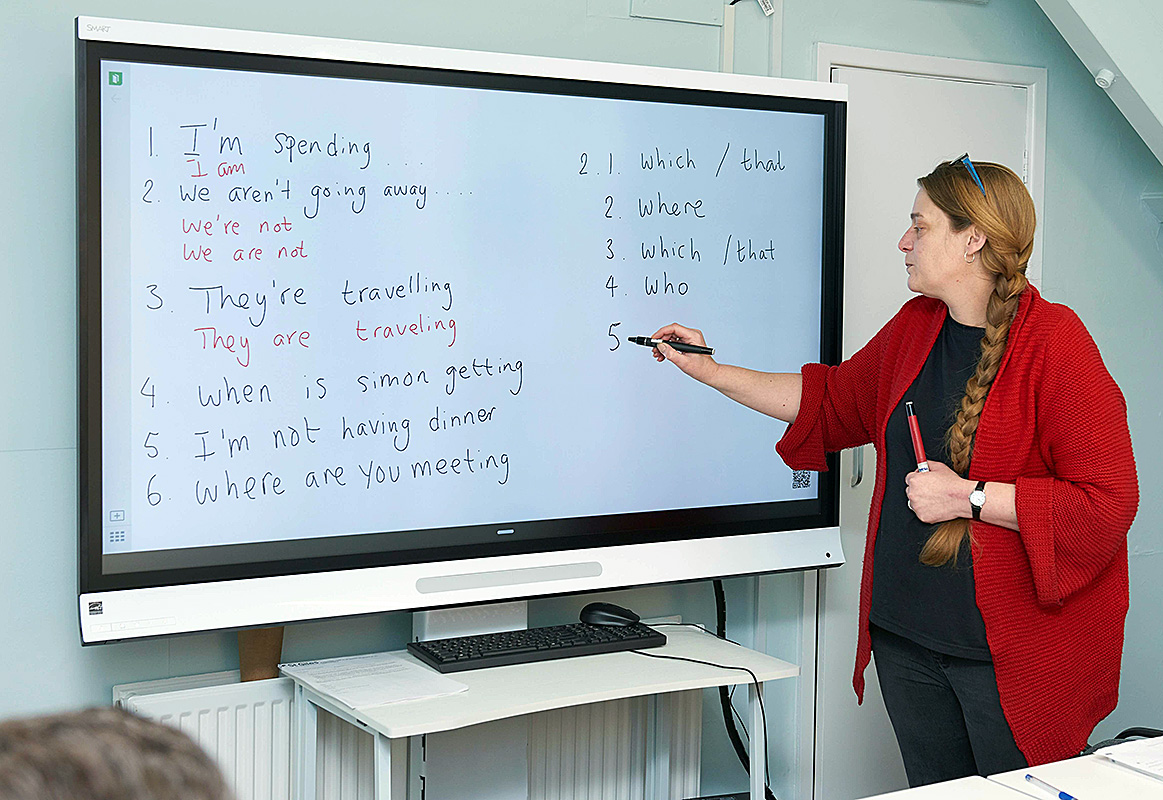 SMART
1. I'm spending ....
I am
2. We aren't going away ....
We're not
We are not
3. They're travelling
They are traveling
4. When is simon getting
5. I'm not having dinner
6. Where are you meeting
2. 1. which / that
2. where
3. which / that
4. who
5
St Giles